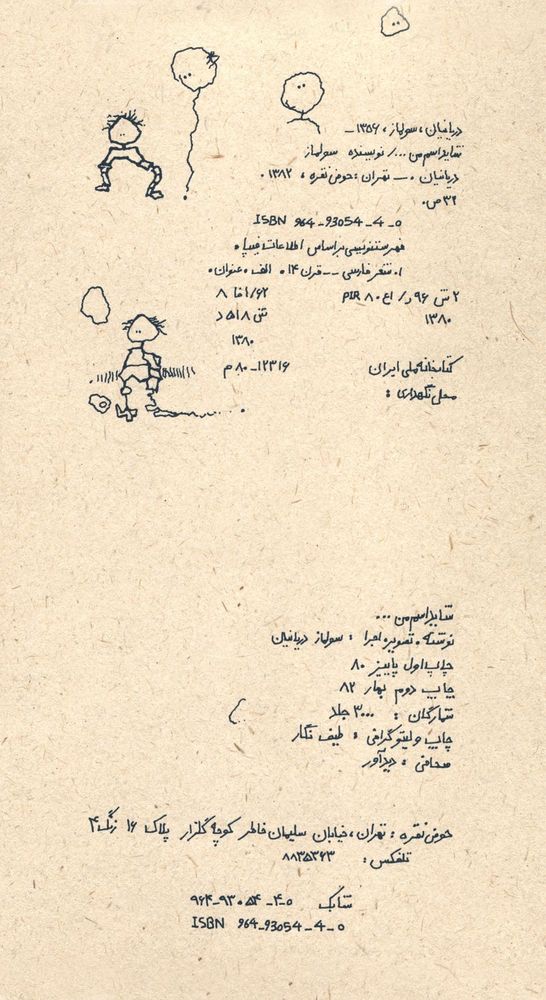 دریانیان، سولماز، ۱۳۵۶ـ
شاید اسم من .../ نویسنده سولماز
دریانیان. ـــ تهران: حوض نقره، ۱۳۸۲.
۳۲ ص.
ISBN 964-93054-4-0
فهرستنویسی براساس اطلاعات فیپا.
۱. شعر فارسی -- قرن ۱۴. الف. عنوان.
۲ ش ۹۶ ر/ PIR ۸۰ ۸ فا۱/۶۲
۱۳۸۰ ش ۵۱۸ د
۱۳۸۰
کتابخانه ملی ایران ۱۲۳۱۶ـ۸۰ م
محل نگهداری:
شاید اسم من ...
نوشته، تصویر، اجرا : سولماز دریانیان
چاپ اول پاییز ۸۰
چاپ دوم بهار ۸۲
شمارگان : ۳۰۰۰ جلد
چاپ و لیتوگرافی : طیف نگار
صحافی : دیدآور
حوض نقره : تهران، خیابان سلیمان خاطر کوچه گلزار پلاک ۱۶ زنگ ۴
تلفکس : ۸۸۳۵۳۶۳
شابک ۹۶۴-۹۳۰۵۴-۴-۰
ISBN 964-93054-4-0